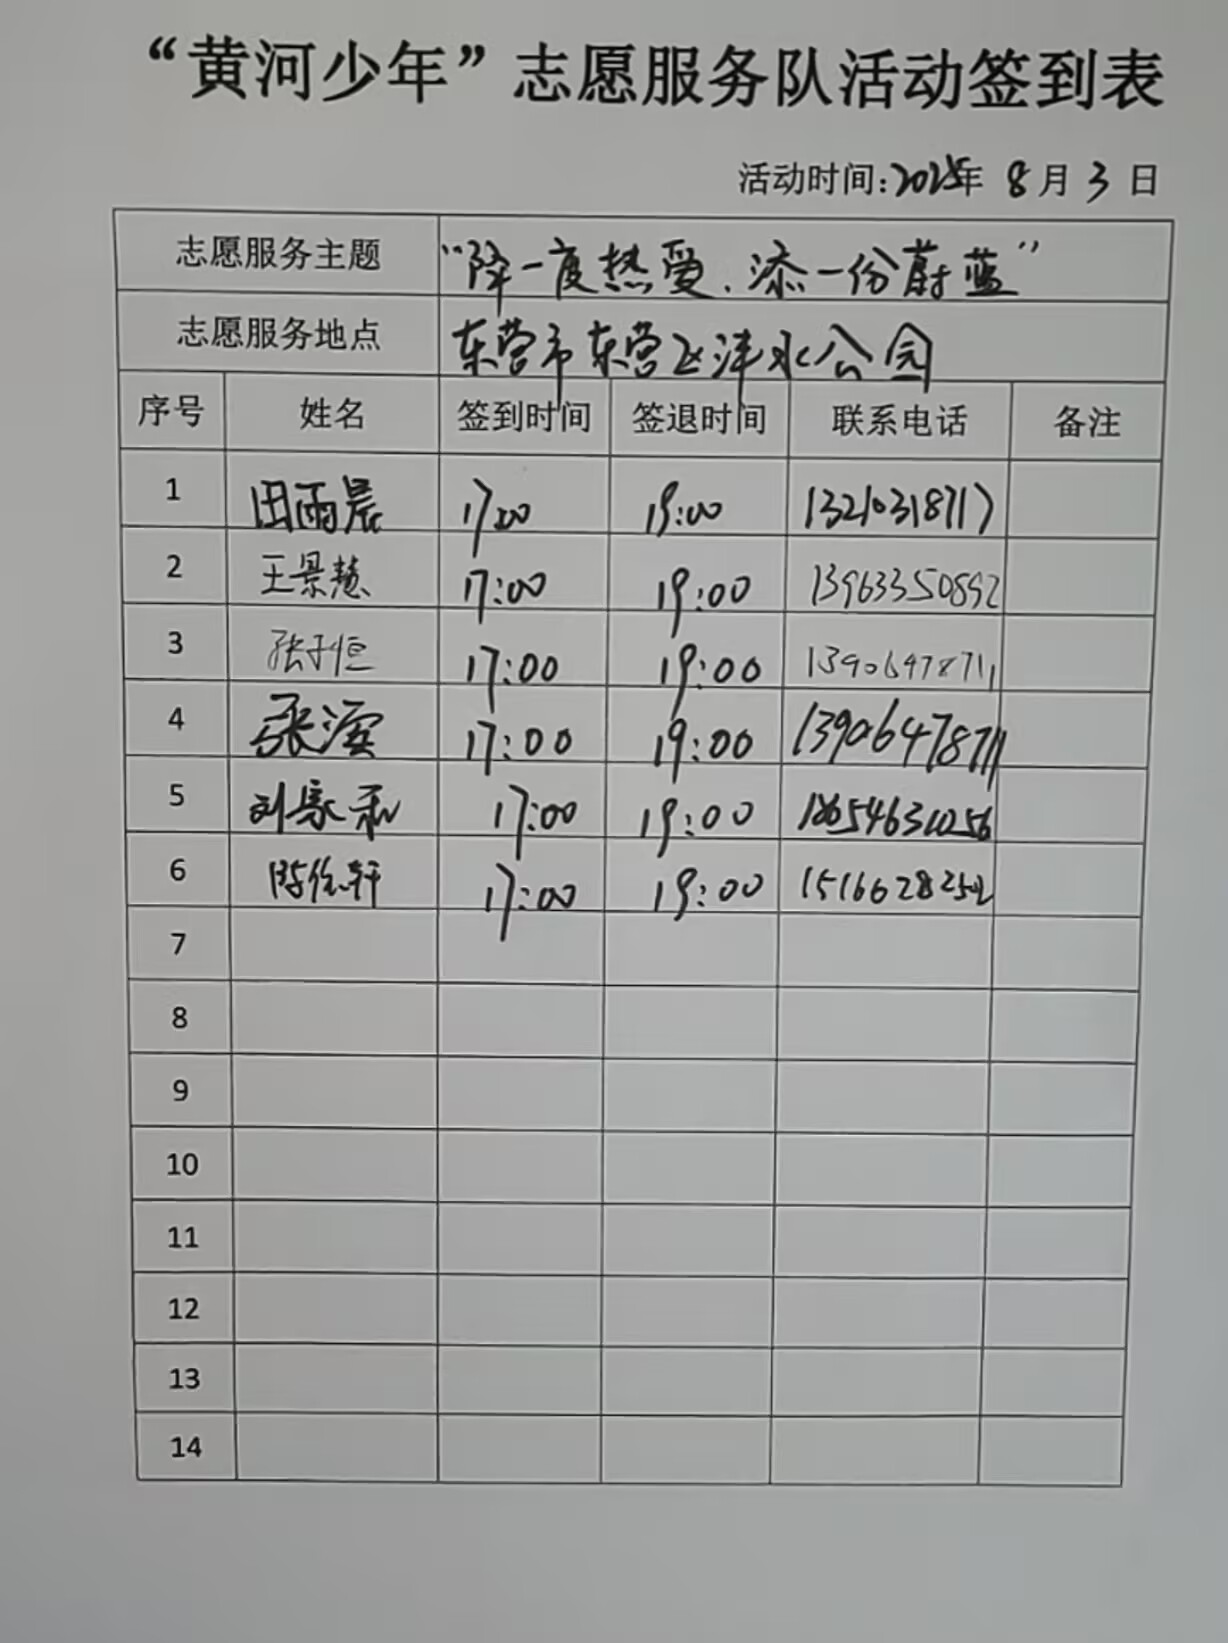 “黄河少年”志愿服务队活动签到表
活动时间:2025年 8月3日
志愿服务主题 “降一度热爱、添一份蔚蓝”
志愿服务地点 东营市东营区沣水公园
序号 姓名 签到时间 签退时间 联系电话 备注
1 田雨晨 17:00 19:00 13210318717
2 王景慧 17:00 19:00 13963350892
3 张子恒 17:00 19:00 13906478711
4 张滨 17:00 19:00 13906478711
5 刘家 17:00 19:00 18654631056
6 轩 17:00 19:00 15166282502
7
8
9
10
11
12
13
14